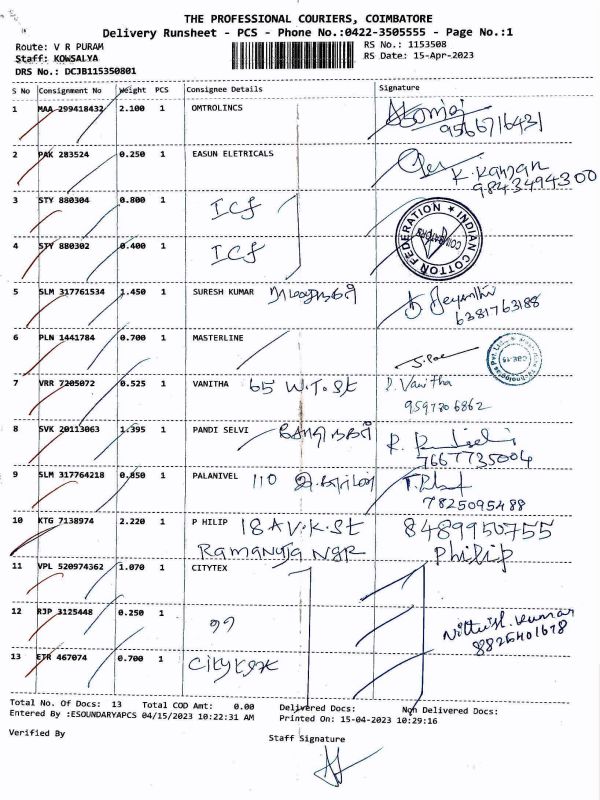 THE PROFESSIONAL COURIERS, COIMBATORE
Delivery Runsheet - PCS - Phone No.:0422-3505555 - Page No.:1
Route: V R PURAM RS No.: 1153508
Staff: KOWSALYA RS Date: 15-Apr-2023
DRS No.: DCJB115350801
S No Consignment No Weight PCS Consignee Details Signature
1 MAA 299418432 2.100 1 OMTROLINCS
9566716431
2 PAK 283524 0.250 1 EASUN ELETRICALS K. Kannan
9843494300
3 STY 880304 0.800 1 ICF
INDIAN COTTON FEDERATION COIMBATORE
4 STY 880302 0.400 1 ICF
5 SLM 317761534 1.450 1 SURESH KUMAR Jeyanthi
6381763188
6 PLN 1441784 0.700 1 MASTERLINE
7 VRR 7205072 0.525 1 VANITHA 65 W.T.St D. Vanitha
9597306862
8 SVK 20113063 1.395 1 PANDI SELVI
7667735004
9 SLM 317764218 0.850 1 PALANIVEL 110
7825095488
10 KTG 7138974 2.220 1 P HILIP 18 A V.K.St 8489950755
Ramanuja Ngr Philip
11 VPL 520974362 1.070 1 CITYTEX
12 RJP 3125448 0.250 1 ,, Kumar
8825401678
13 ETR 467074 0.700 1 Citytex
Total No. Of Docs: 13 Total COD Amt: 0.00 Delivered Docs: Non Delivered Docs:
Entered By :ESOUNDARYAPCS 04/15/2023 10:22:31 AM Printed On: 15-04-2023 10:29:16
Verified By Staff Signature